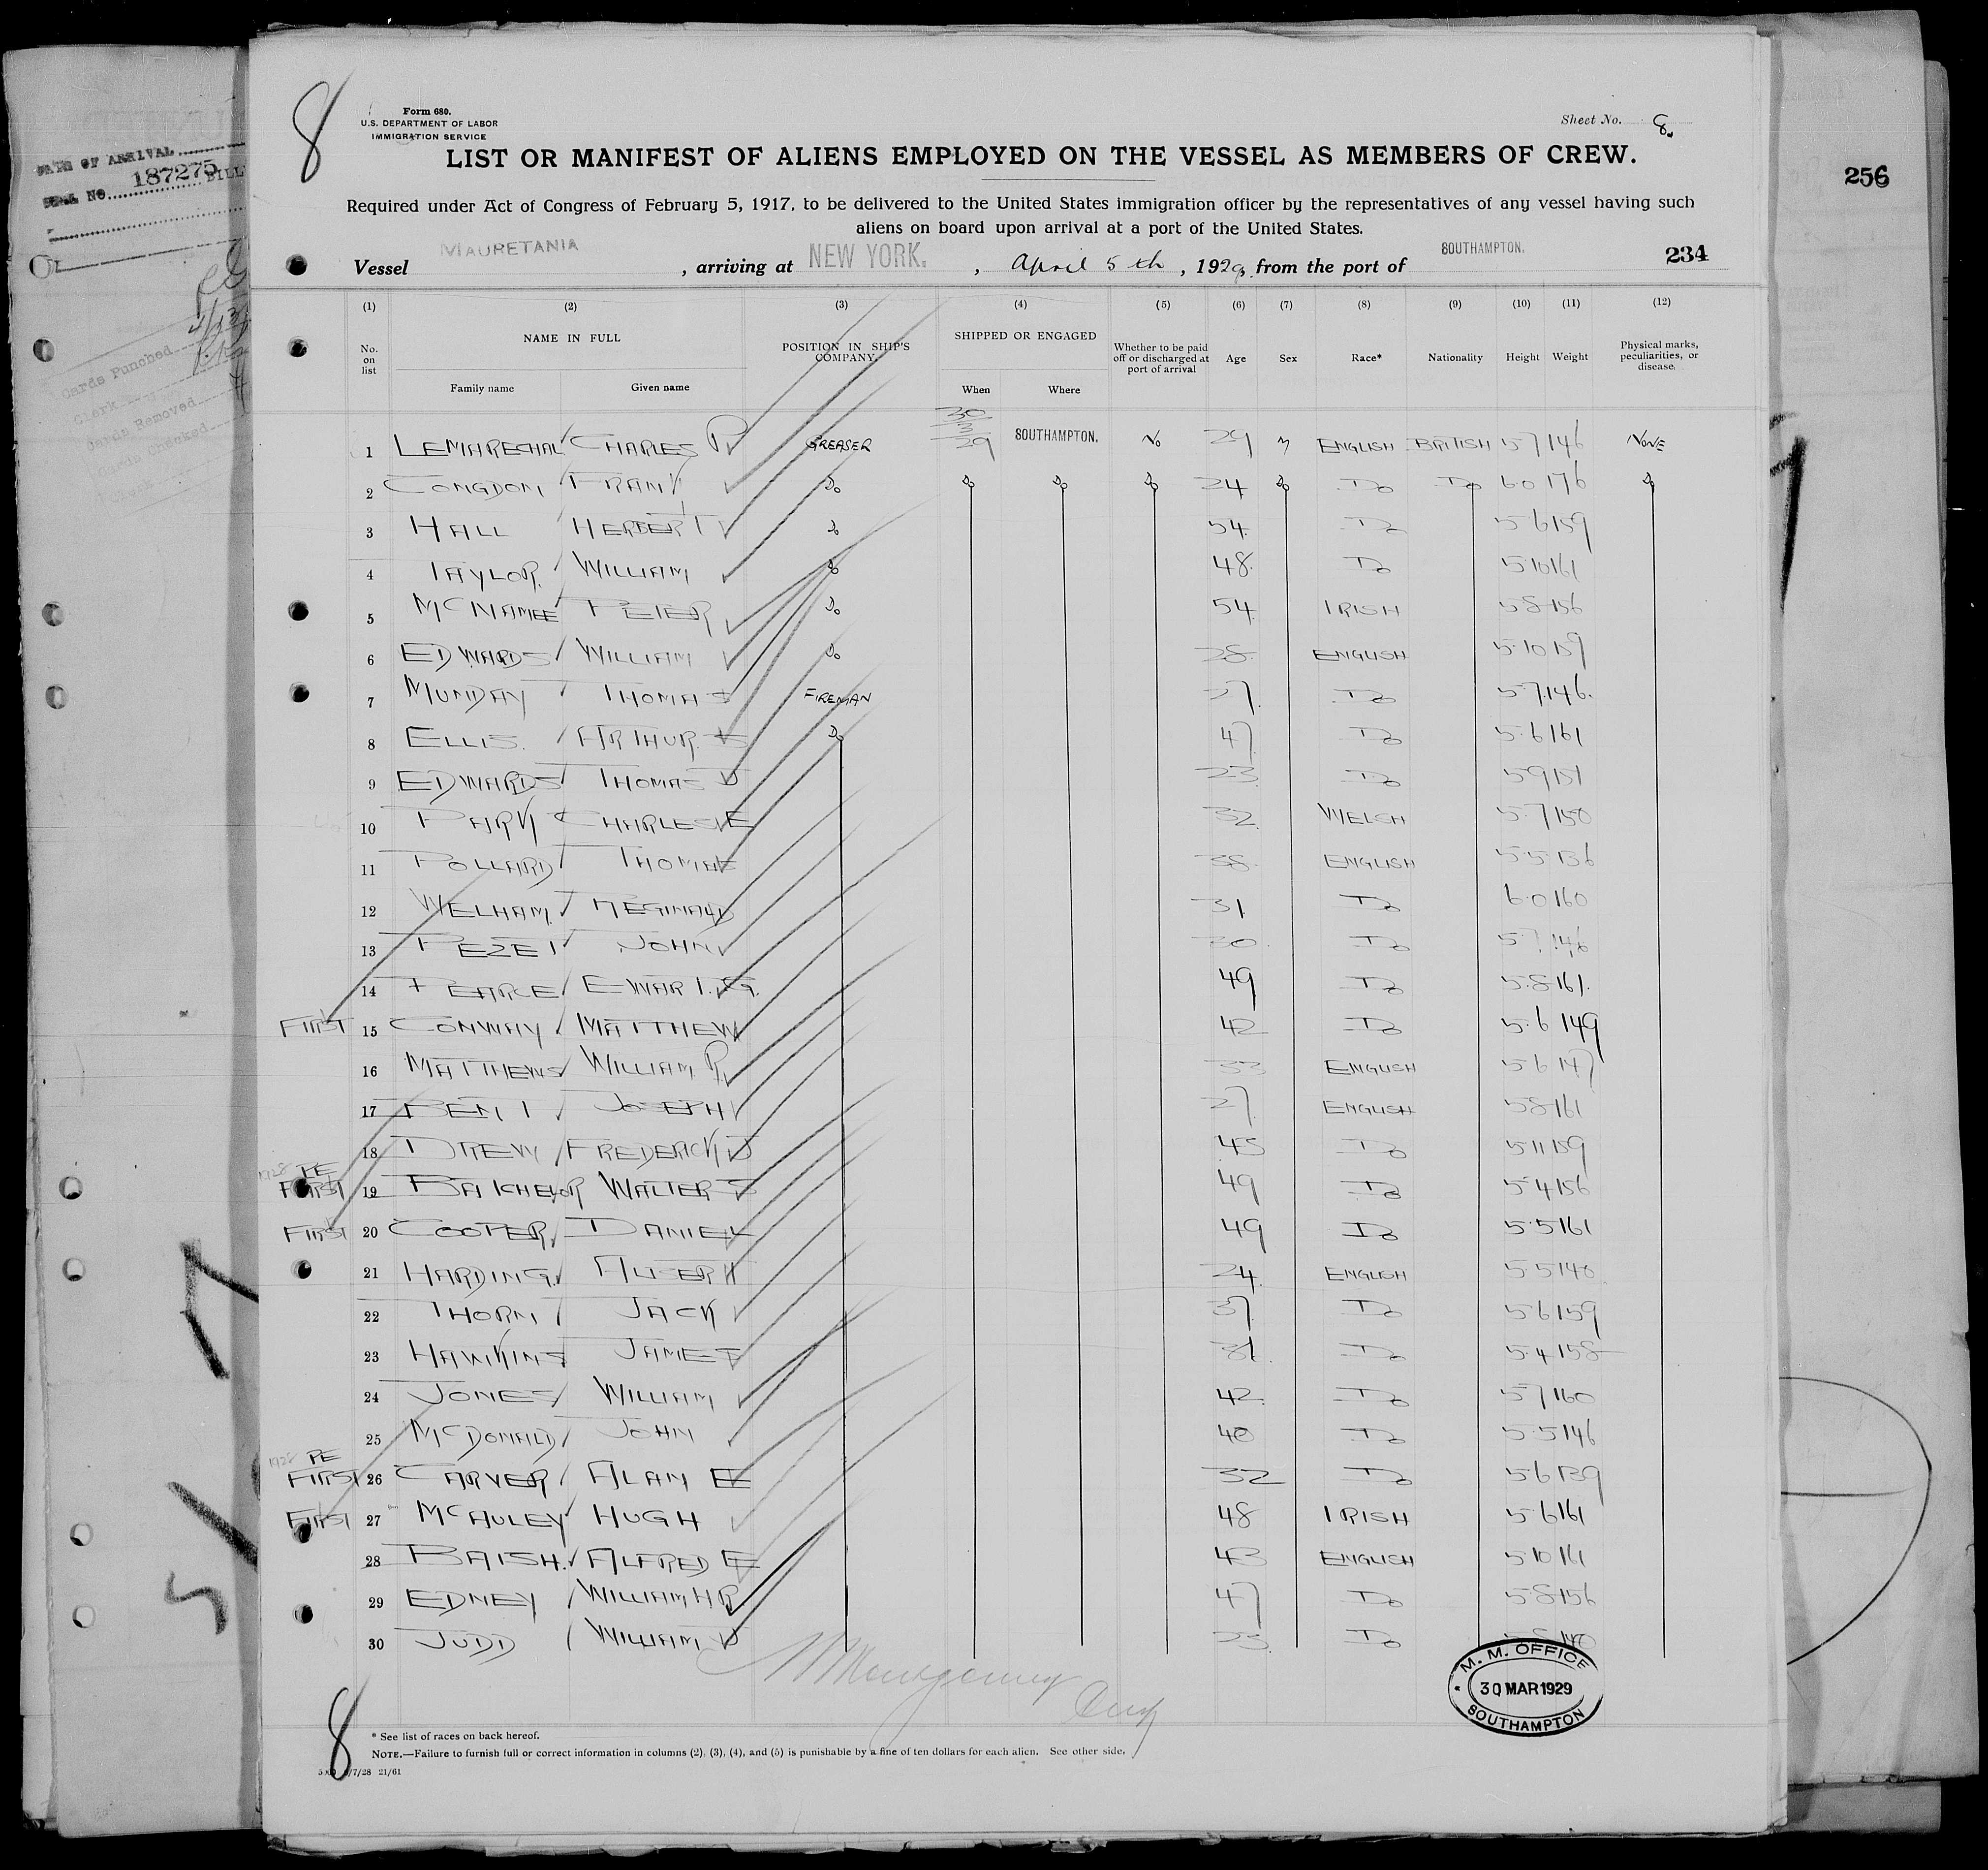 8
Form 680.
U.S. DEPARTMENT OF LABOR
IMMIGRATION SERVICE
Sheet No. 8.
LIST OR MANIFEST OF ALIENS EMPLOYED ON THE VESSEL AS MEMBERS OF CREW.
Required under Act of Congress of February 5, 1917, to be delivered to the United States immigration officer by the representatives of any vessel having such
aliens on board upon arrival at a port of the United States.
Vessel MAURETANIA, arriving at NEW YORK., April 5th, 1929, from the port of SOUTHAMPTON. 234
256
DATE OF ARRIVAL
No. 187275
Cards Punched
Clerk
Cards Removed
Cards Checked
(1) (2) (3) (4) (5) (6) (7) (8) (9) (10) (11) (12)
No. on list
NAME IN FULL
Family name Given name
POSITION IN SHIP'S COMPANY.
SHIPPED OR ENGAGED
When Where
Whether to be paid off or discharged at port of arrival
Age Sex Race* Nationality Height Weight
Physical marks, peculiarities, or disease.
1 LEMARECHAL CHARLES P GREASER 30/3/29 SOUTHAMPTON. No 29 M ENGLISH BRITISH 5 7 146 NONE
2 CONGDON FRANK Do Do Do Do 24 Do Do Do 6 0 176 Do
3 HALL HERBERT Do 54 Do 5 6 159
4 TAYLOR. WILLIAM Do 48 Do 5 10 161
5 MCNAMEE PETER Do 54 IRISH 5 8 156
6 EDWARDS WILLIAM Do 28 ENGLISH 5 10 159
7 MUNDAY THOMAS FIREMAN 37 Do 5 7 146.
8 ELLIS. ARTHUR. Do 47 Do 5 6 161
9 EDWARDS THOMAS J 23 Do 5 9 151
10 PARK CHARLES E 32 WELSH 5 7 150
11 POLLARD THOMAS 38 ENGLISH 5 5 136
12 WELHAM REGINALD 31 Do 6 0 160
13 PEZET JOHN 30 Do 5 7 146
14 PEARCE EWART. G. 49 Do 5 8 161.
FIRST 15 CONWAY MATTHEW 42 Do 5 6 149
16 MATTHEWS WILLIAM R 33 ENGLISH 5 6 147
17 BENT JOSEPH 27 ENGLISH 5 8 161
18 DREW FREDERICK J 45 Do 5 11 159
1928 RE
FIRST 19 BATCHELOR WALTER S 49 Do 5 4 156
FIRST 20 COOPER DANIEL 49 Do 5 5 161
21 HARDING. ALBERT 24 ENGLISH 5 5 140
22 THORN JACK 37 Do 5 6 159
23 HAWKINS JAMES 31 Do 5 4 158
24 JONES WILLIAM 42 Do 5 7 160
25 MCDONALD JOHN 40 Do 5 5 146
1928 RE
FIRST 26 CARVER ALAN E 32 Do 5 6 139
FIRST 27 MCAULEY HUGH 48 IRISH 5 6 161
28 BAISH. ALFRED E 43 ENGLISH 5 10 161
29 EDNEY WILLIAM H R 47 Do 5 8 156
30 JUDD WILLIAM J 23 Do
Montgomery
M. M. OFFICE
30 MAR 1929
SOUTHAMPTON
8
* See list of races on back hereof.
NOTE.—Failure to furnish full or correct information in columns (2), (3), (4), and (5) is punishable by a fine of ten dollars for each alien. See other side.
7/28 21/61